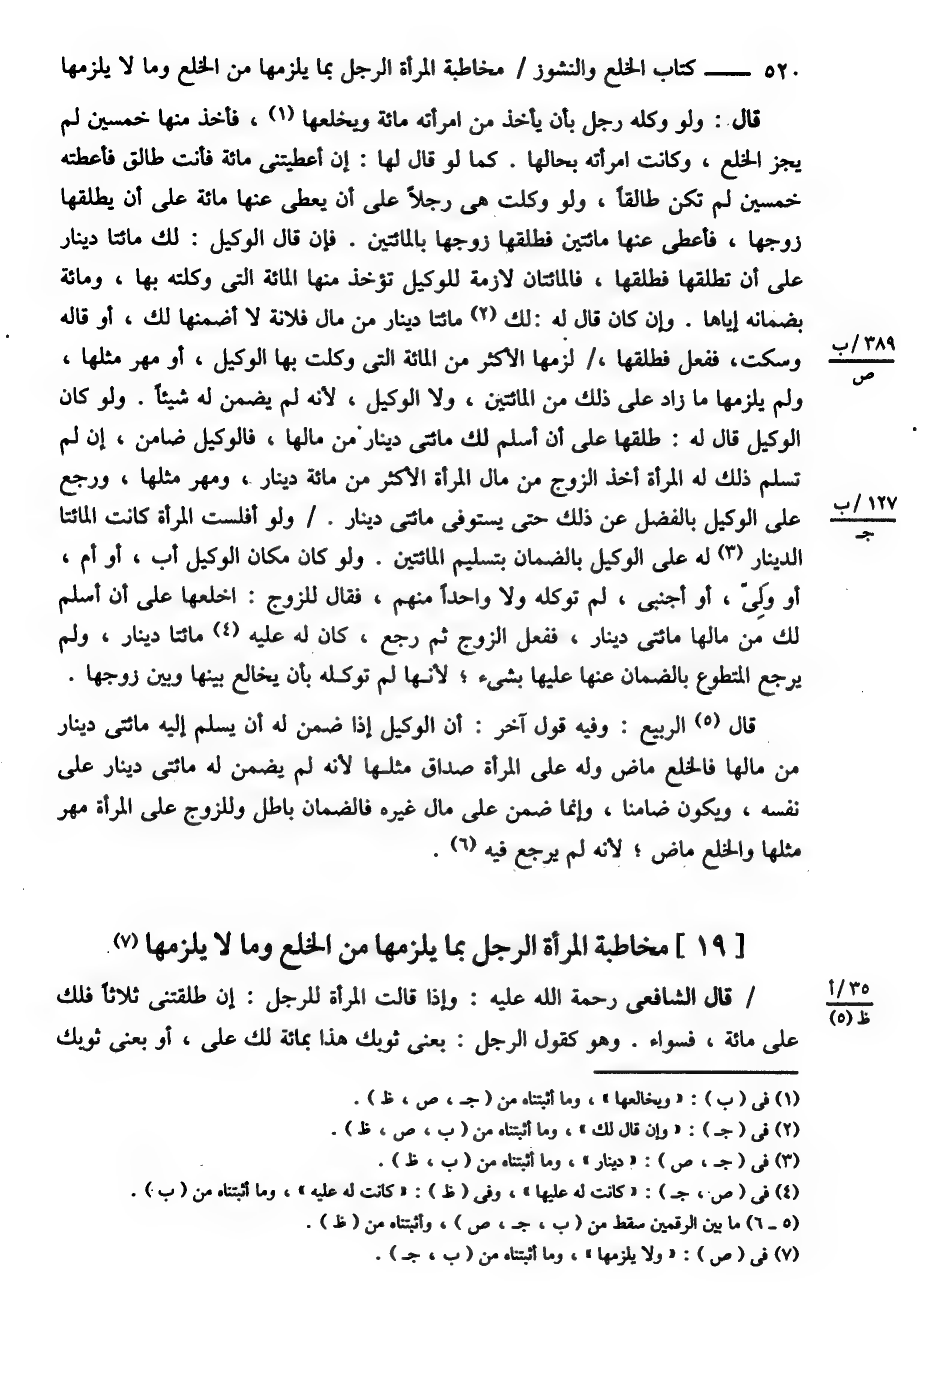 ٥٢٠ ــــ كتاب الخلع والنشوز / مخاطبة المرأة الرجل بما يلزمها من الخلع وما لا يلزمها
قال : ولو وكله رجل بأن يأخذ من امرأته مائة ويخلعها (١) ، فأخذ منها خمسين لم
يجز الخلع ، وكانت امرأته بحالها . كما لو قال لها : إن أعطيتنى مائة فأنت طالق فأعطته
خمسين لم تكن طالقاً ، ولو وكلت هى رجلاً على أن يعطى عنها مائة على أن يطلقها
زوجها ، فأعطى عنها مائتين فطلقها زوجها بالمائتين . فإن قال الوكيل : لك مائتا دينار
على أن تطلقها فطلقها ، فالمائتان لازمة للوكيل تؤخذ منها المائة التى وكلته بها ، ومائة
بضمانه إياها . وإن كان قال له :لك (٢) مائتا دينار من مال فلانة لا أضمنها لك ، أو قاله
وسكت، ففعل فطلقها ،/ لزمها الأكثر من المائة التى وكلت بها الوكيل ، أو مهر مثلها ،
ولم يلزمها ما زاد على ذلك من المائتين ، ولا الوكيل ، لأنه لم يضمن له شيئاً . ولو كان
الوكيل قال له : طلقها على أن أسلم لك مائتى دينار من مالها ، فالوكيل ضامن ، إن لم
تسلم ذلك له المرأة أخذ الزوج من مال المرأة الأكثر من مائة دينار ، ومهر مثلها ، ورجع
على الوكيل بالفضل عن ذلك حتى يستوفى مائتى دينار . / ولو أفلست المرأة كانت المائتا
الدينار (٣) له على الوكيل بالضمان بتسليم المائتين . ولو كان مكان الوكيل أب ، أو أم ،
أو وَلِىّ ، أو أجنبى ، لم توكله ولا واحداً منهم ، فقال للزوج : اخلعها على أن أسلم
لك من مالها مائتى دينار ، ففعل الزوج ثم رجع ، كان له عليه (٤) مائتا دينار ، ولم
يرجع المتطوع بالضمان عنها عليها بشىء ؛ لأنـها لم توكـله بأن يخالع بينها وبين زوجها .
قال (٥) الربيع : وفيه قول آخر : أن الوكيل إذا ضمن له أن يسلم إليه مائتى دينار
من مالها فالخلع ماض وله على المرأة صداق مثلـها لأنه لم يضمن له مائتى دينار على
نفسه ، ويكون ضامنا ، وإنما ضمن على مال غيره فالضمان باطل وللزوج على المرأة مهر
مثلها والخلع ماض ؛ لأنه لم يرجع فيه (٦) .
[ ١٩ ] مخاطبة المرأة الرجل بما يلزمها من الخلع وما لا يلزمها (٧)
/ قال الشافعى رحمة الله عليه : وإذا قالت المرأة للرجل : إن طلقتنى ثلاثاً فلك
على مائة ، فسواء . وهو كقول الرجل : بعنى ثوبك هذا بمائة لك على ، أو بعنى ثوبك
(١) فى ( ب ) : « ويخالعها » ، وما أثبتناه من ( جـ ، ص ، ظ ) .
(٢) فى ( جـ ) : « وإن قال لك » ، وما أثبتناه من ( ب ، ص ، ظ ) .
(٣) فى ( جـ ، ص ) : « دينار » ، وما أثبتناه من ( ب ، ظ ) .
(٤) فى ( ص ، جـ ) : « كانت له عليها » ، وفى ( ظ ) : « كانت له عليه » ، وما أثبتناه من ( ب ) .
(٥ ـ ٦) ما بين الرقمين سقط من ( ب ، جـ ، ص ) ، وأثبتناه من ( ظ ) .
(٧) فى ( ص ) : « ولا يلزمها » ، وما أثبتناه من ( ب ، جـ ) .
٣٨٩/ ب
ص
١٢٧/ ب
جـ
٣٥/ أ
ظ (٥)